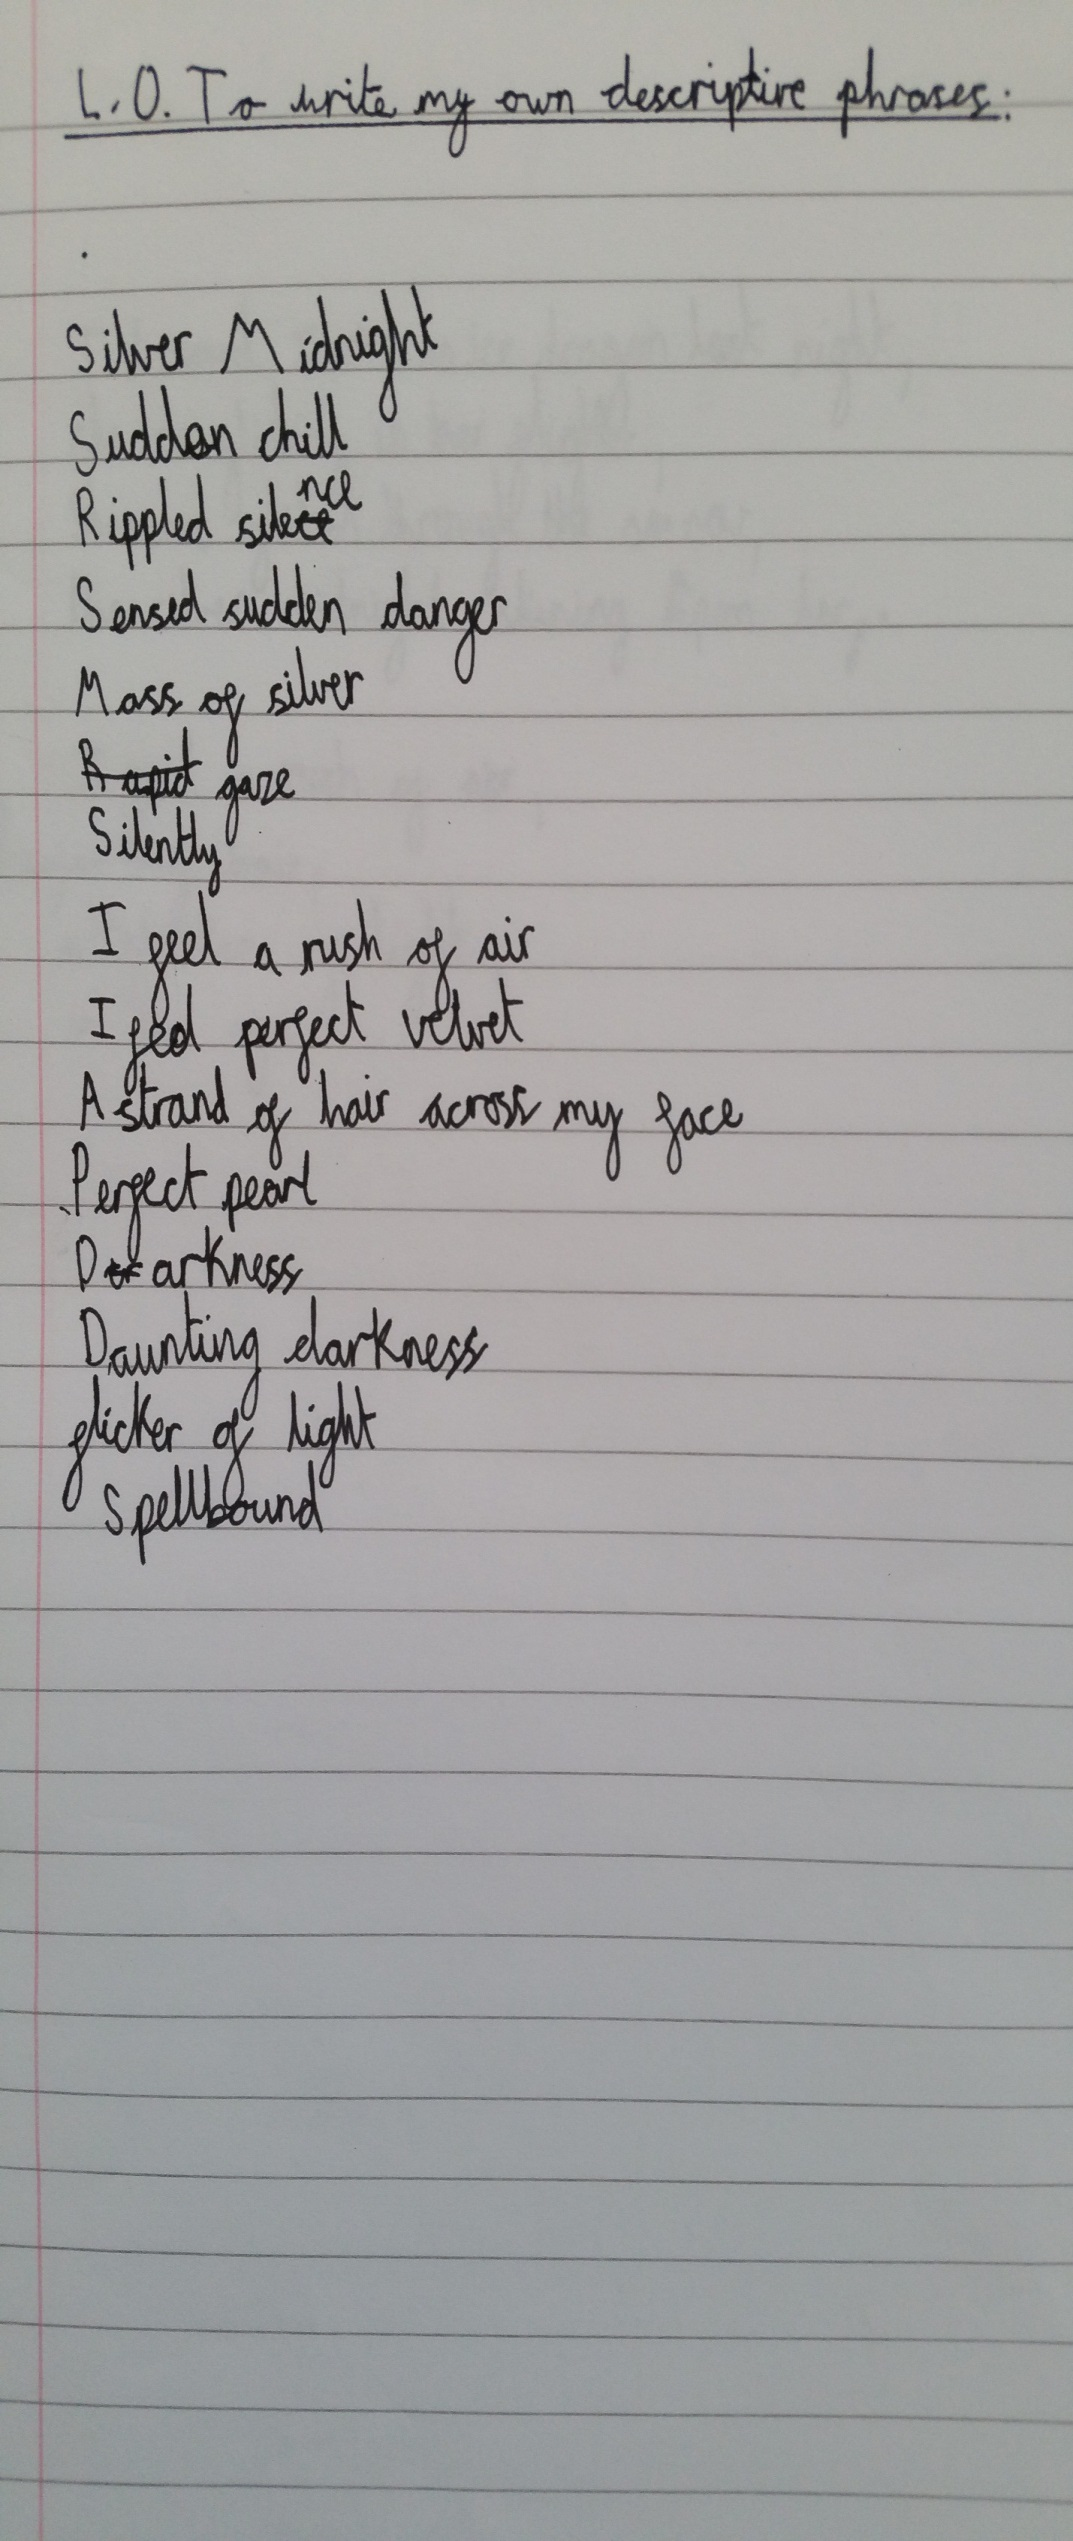 L.O. To write my own descriptive phrases:
Silver Midnight
Sudden chill
Rippled silence
Sensed sudden danger
Mass of silver
Rapid gaze
Silently
I feel a rush of air
I feel perfect velvet
A strand of hair across my face
Perfect pearl
Darkness
Daunting darkness
flicker of light
Spellbound